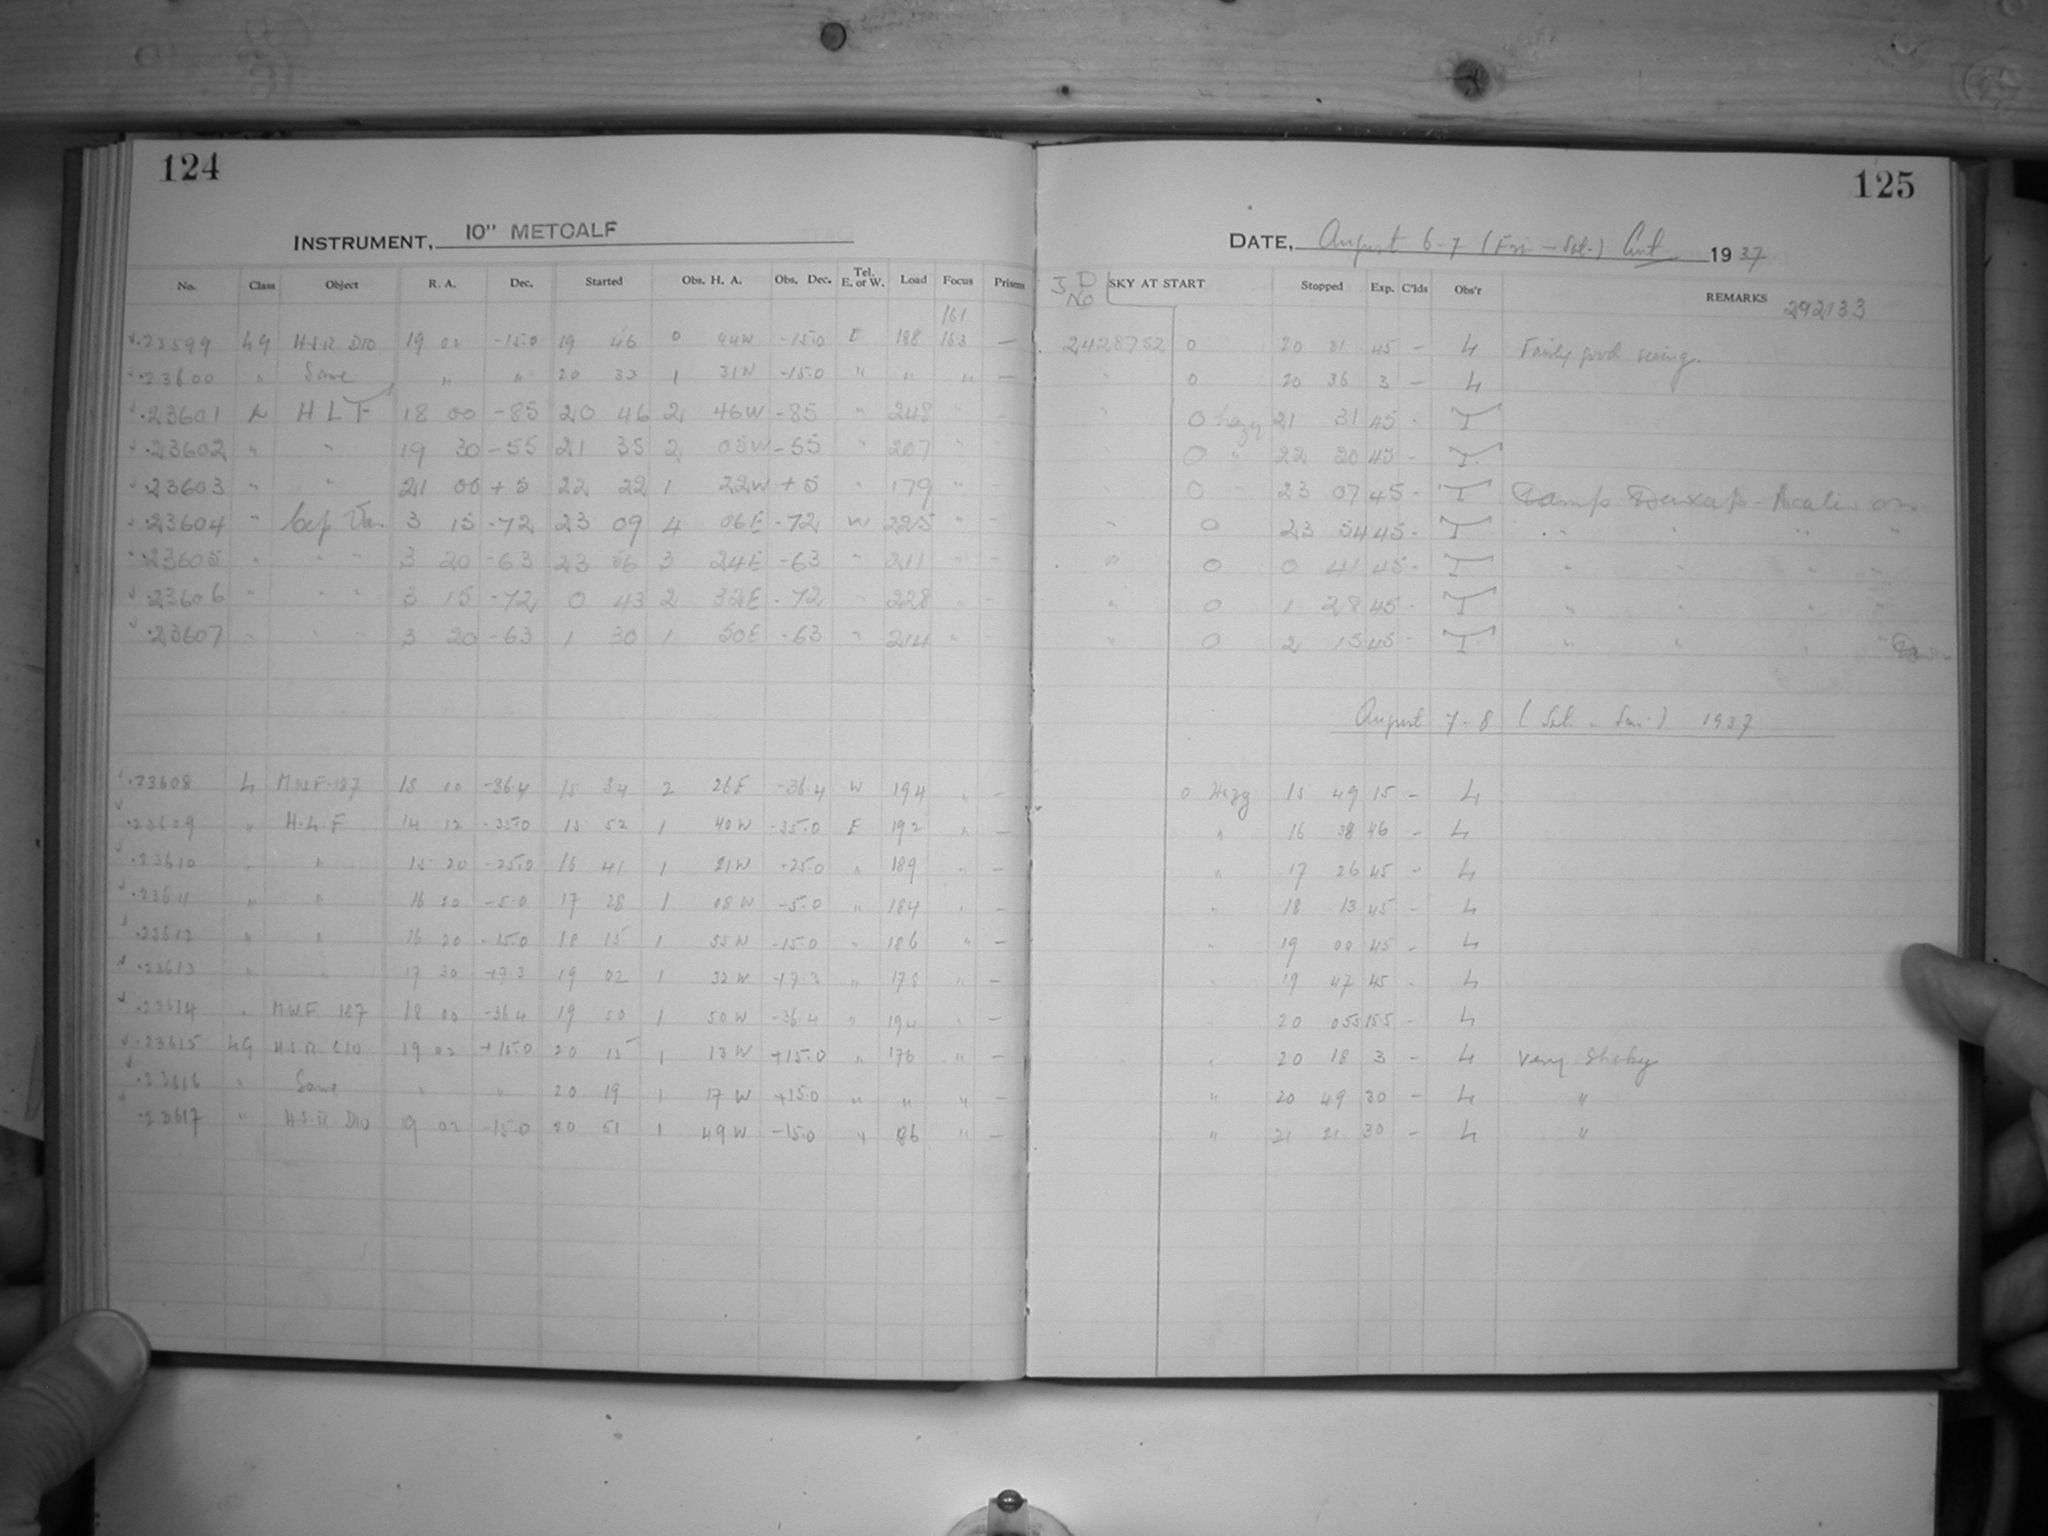 124
INSTRUMENT, 10" METCALF
No. Class Object R. A. Dec. Started Obs. H. A. Obs. Dec. Tel. E. or W. Load Focus Prisms
161
23599 LG H.S.R. D10 19 02 -15.0 19 46 0 44W -15.0 E 188 163 —
23600 " Same " " 20 33 1 31W -15.0 " " " —
23601 H L F 18 00 -85 20 46 2 46W -85 " 248 " -
23602 " " 19 30 -55 21 35 2 05W -55 " 207 " -
23603 " " 21 00 +5 22 22 1 22W +5 " 179 " -
23604 " 3 15 -72 23 09 4 06E -72 W 225 " -
23605 " " " 3 20 -63 23 56 3 24E -63 " 211 " -
23606 " " " 3 15 -72 0 43 2 32E -72 " 228 " -
23607 " " " 3 20 -63 1 30 1 50E -63 " 214 " -
23608 L MWF-187 18 00 -36.4 15 34 2 26E -36.4 W 194 " -
23609 " H.L.F 14 12 -35.0 15 52 1 40W -35.0 E 192 " -
23610 " " 15 20 -25.0 16 41 1 21W -25.0 " 189 " -
23611 " " 16 20 -5.0 17 28 1 08W -5.0 " 184 " -
23612 " " 16 20 -15.0 18 15 1 55W -15.0 " 186 " -
23613 " " 17 30 +7.3 19 02 1 32W +7.3 " 178 " -
23614 " MWF 187 18 00 -36.4 19 50 1 50W -36.4 " 194 " -
23615 LG H.S.R. C10 19 02 +15.0 20 15 1 13W +15.0 " 176 " -
23616 " Same " " 20 19 1 17W +15.0 " " " -
23617 " H.S.R. D10 19 02 -15.0 20 51 1 49W -15.0 " 186 " -
125
DATE, August 6-7 (Fri.-Sat.) 1937
J D No SKY AT START Stopped Exp. C'lds Obs'r REMARKS 292133
2428752 0 20 31 45 - L Fairly good seeing.
" 0 20 36 3 - L
" 0 hazy 21 31 45 - T
" 0 " 22 20 45 - T
" 0 23 07 45 - T Damp Dewcap-Heater on
" 0 23 54 45 - T " " " "
" 0 0 41 45 - T " " " "
" 0 1 28 45 - T " " " "
" 0 2 15 45 - T " " " "
August 7-8 (Sat.-Sun.) 1937
0 Hazy 15 49 15 - L
" 16 38 46 - L
" 17 26 45 - L
" 18 13 45 - L
" 19 00 45 - L
" 19 47 45 - L
" 20 055 155 - L
" 20 18 3 - L Very Shaky
" 20 49 30 - L "
" 21 21 30 - L "